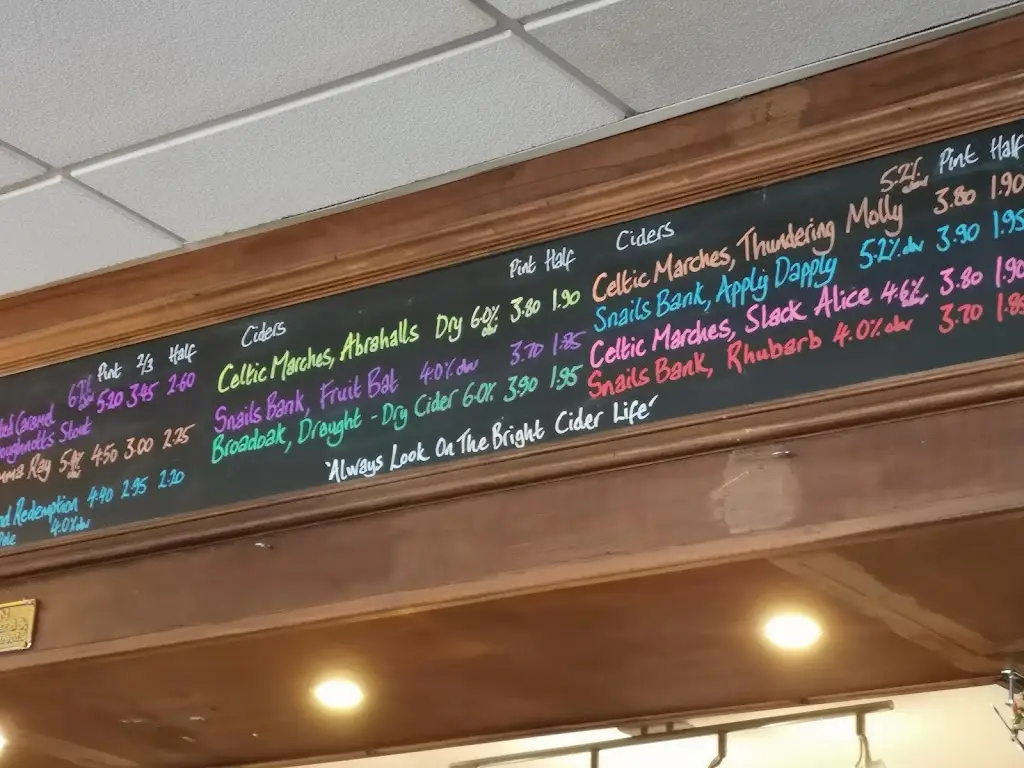 Pint 2/3 Half
Caramel 5.20 3.45 2.60
Stout
Ray 4.50 3.00 2.25
Redemption 4.40 2.95 2.20
4.0% abv
Ciders
Pint Half
Celtic Marches, Abrahalls Dry 6.0% abv 3.80 1.90
Snails Bank, Fruit Bat 4.0% abv 3.70 1.85
Broadoak, Draught - Dry Cider 6.0% 3.90 1.95
'Always Look On The Bright Cider Life'
Ciders
Pint Half
Celtic Marches, Thundering Molly 5.2% abv 3.80 1.90
Snails Bank, Apply Dapply 5.2% abv 3.90 1.95
Celtic Marches, Slack Alice 4.6% abv 3.80 1.90
Snails Bank, Rhubarb 4.0% abv 3.70 1.85